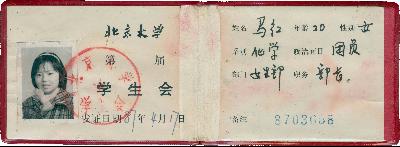 北京大学
第 届
学生会
发证日期87年4月17日
姓名 马红 年龄 20 性别 女
系别 化学 政治面目 团员
部门 女生部 职务 部长
备注 8703058